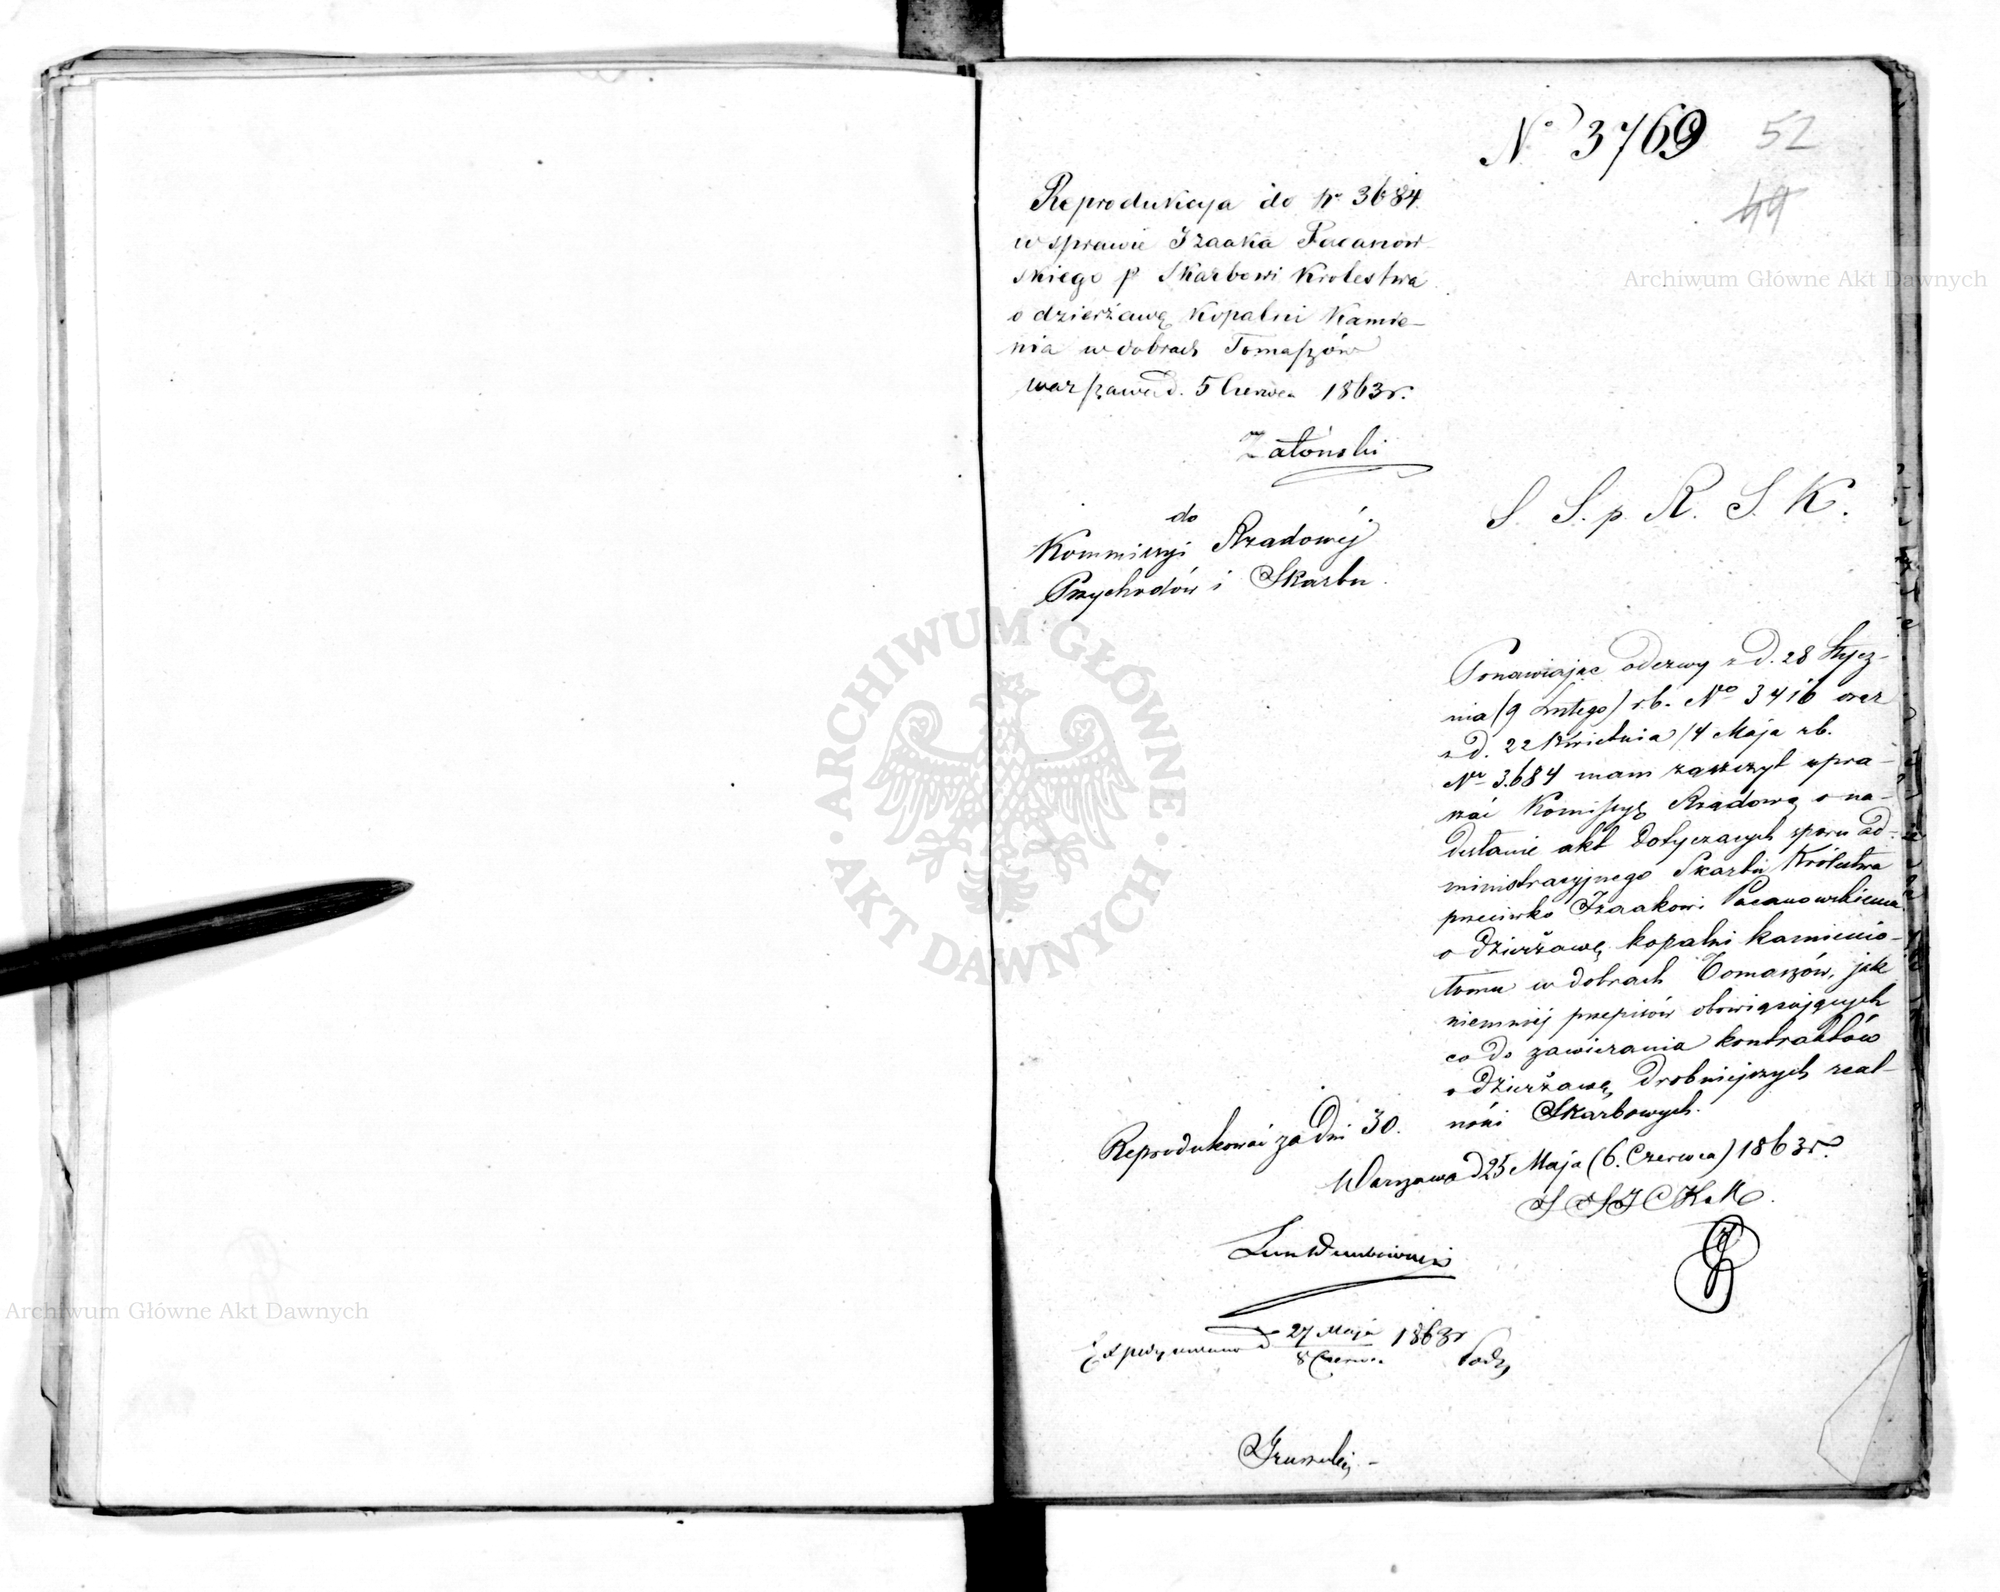 Nº 3769
52
44
Reprodukcya do Nr 3684
w sprawie Izaaka Pacanow-
skiego p. Skarbowi Krolestwa
o dzierżawę Kopalni Kamie-
nia w dobrach Tomaszów
Warszawa d. 5 Czerwca 1863 r.
Zatoński
do
Kommissyi Rządowéj
Przychodów i Skarbu
S. S. p. R. S. K.
Ponawiając odezwy z d. 28 Stycz-
nia (9 Lutego) r.b. No 3416 oraz
z d. 22 Kwietnia /4 Maja r.b.
Nr 3684 mam zaszczyt upra-
szać Komissyę Rządową o na-
desłanie akt dotyczących sporu ad-
ministracyjnego Skarbu Królestwa
przeciwko Izaakowi Pacanowskiemu
o dzierżawę kopalni kamienio-
łomu w dobrach Tomaszów, jak
niemniéj przepisów obowiązujących
co do zawierania kontraktów
o dzierżawę drobniejszych real-
ności Skarbowych.
Reprodukować za dni 30.
Warszawa d 25 Maja (6. Czerwca) 1863 r.
Expedyowano d 27 Maja 1863 r
8 Czerwca
Archiwum Główne Akt Dawnych
Archiwum Główne Akt Dawnych
ARCHIWUM GŁÓWNE · AKT DAWNYCH ·